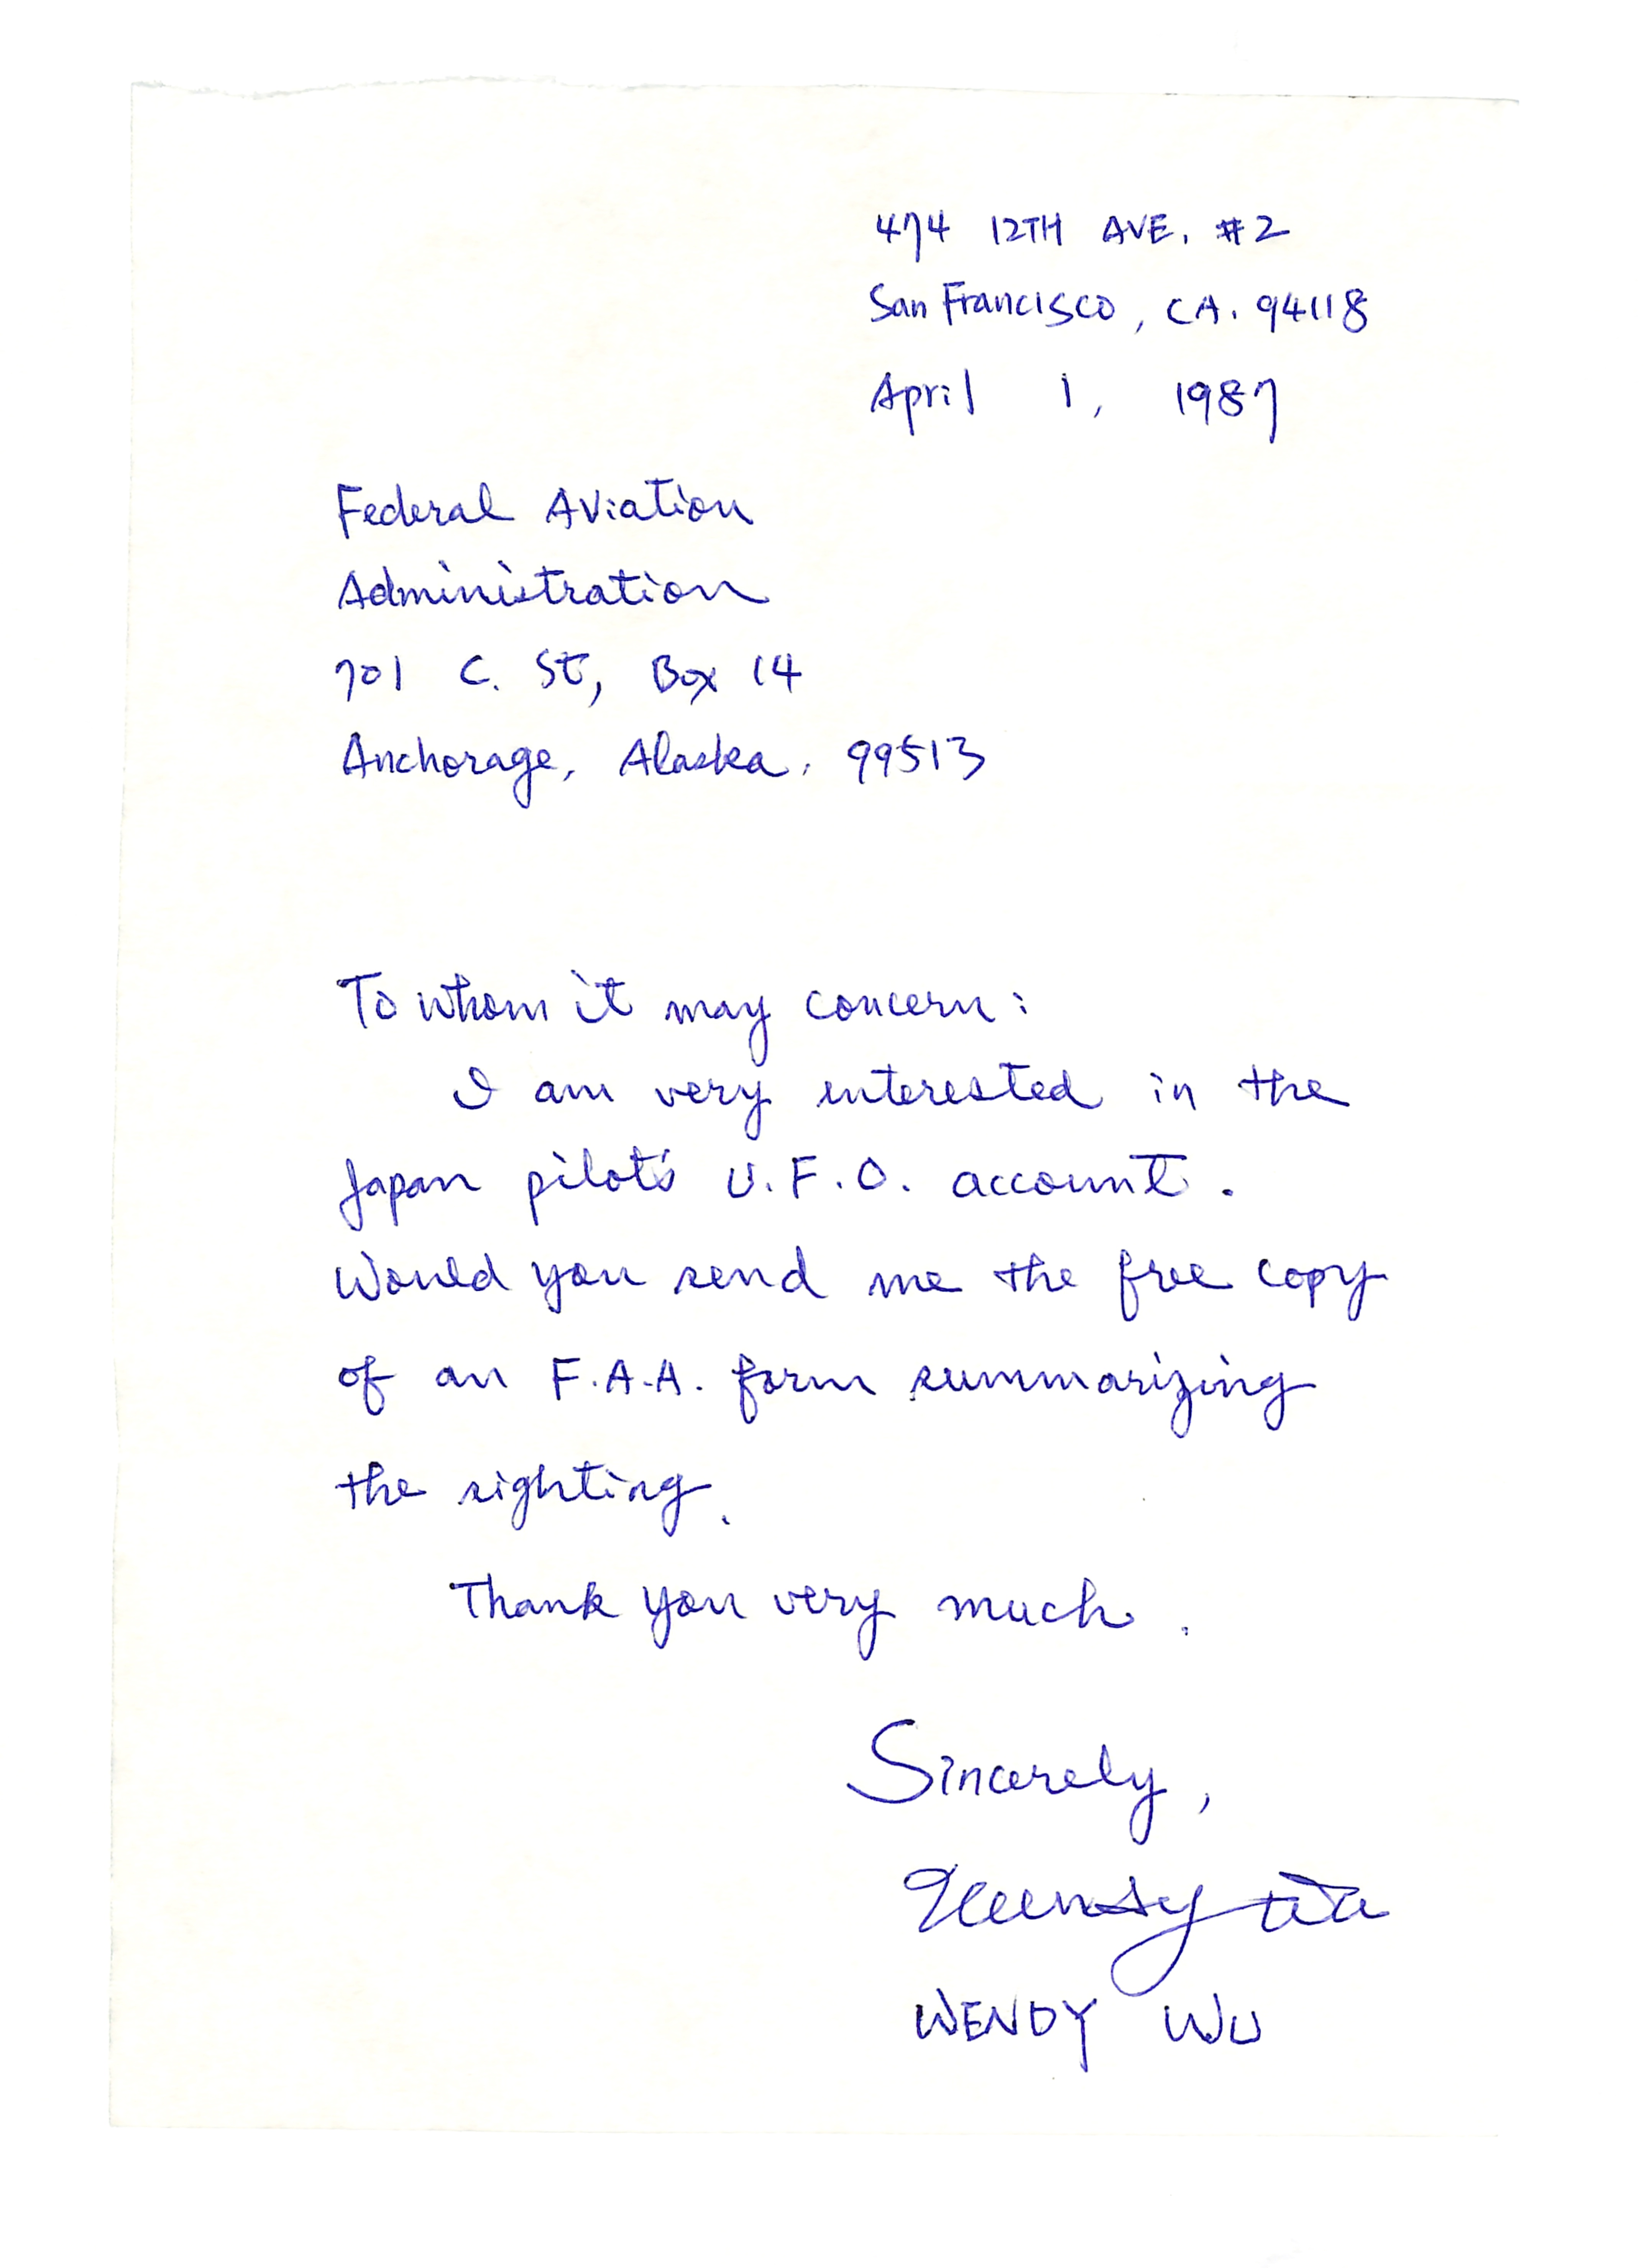 474 12TH AVE. #2
San Francisco, CA. 94118
April 1, 1987
Federal Aviation
Administration
701 C. St, Box 14
Anchorage, Alaska, 99513
To whom it may concern:
I am very interested in the
Japan pilot's U.F.O. account.
Would you send me the free copy
of an F.A.A. form summarizing
the sighting.
Thank you very much.
Sincerely,
Wendy Wu
WENDY WU